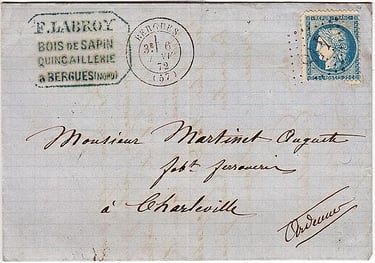 F. LABROY
BOIS DE SAPIN
QUINCAILLERIE
A BERGUES (NORD)
BERGUES
3E
6
72
(57)
REPUB. FRANC.
25
POSTES
25
Monsieur Martinet Auguste
fabt ferronnerie
à Charleville
Ardennes